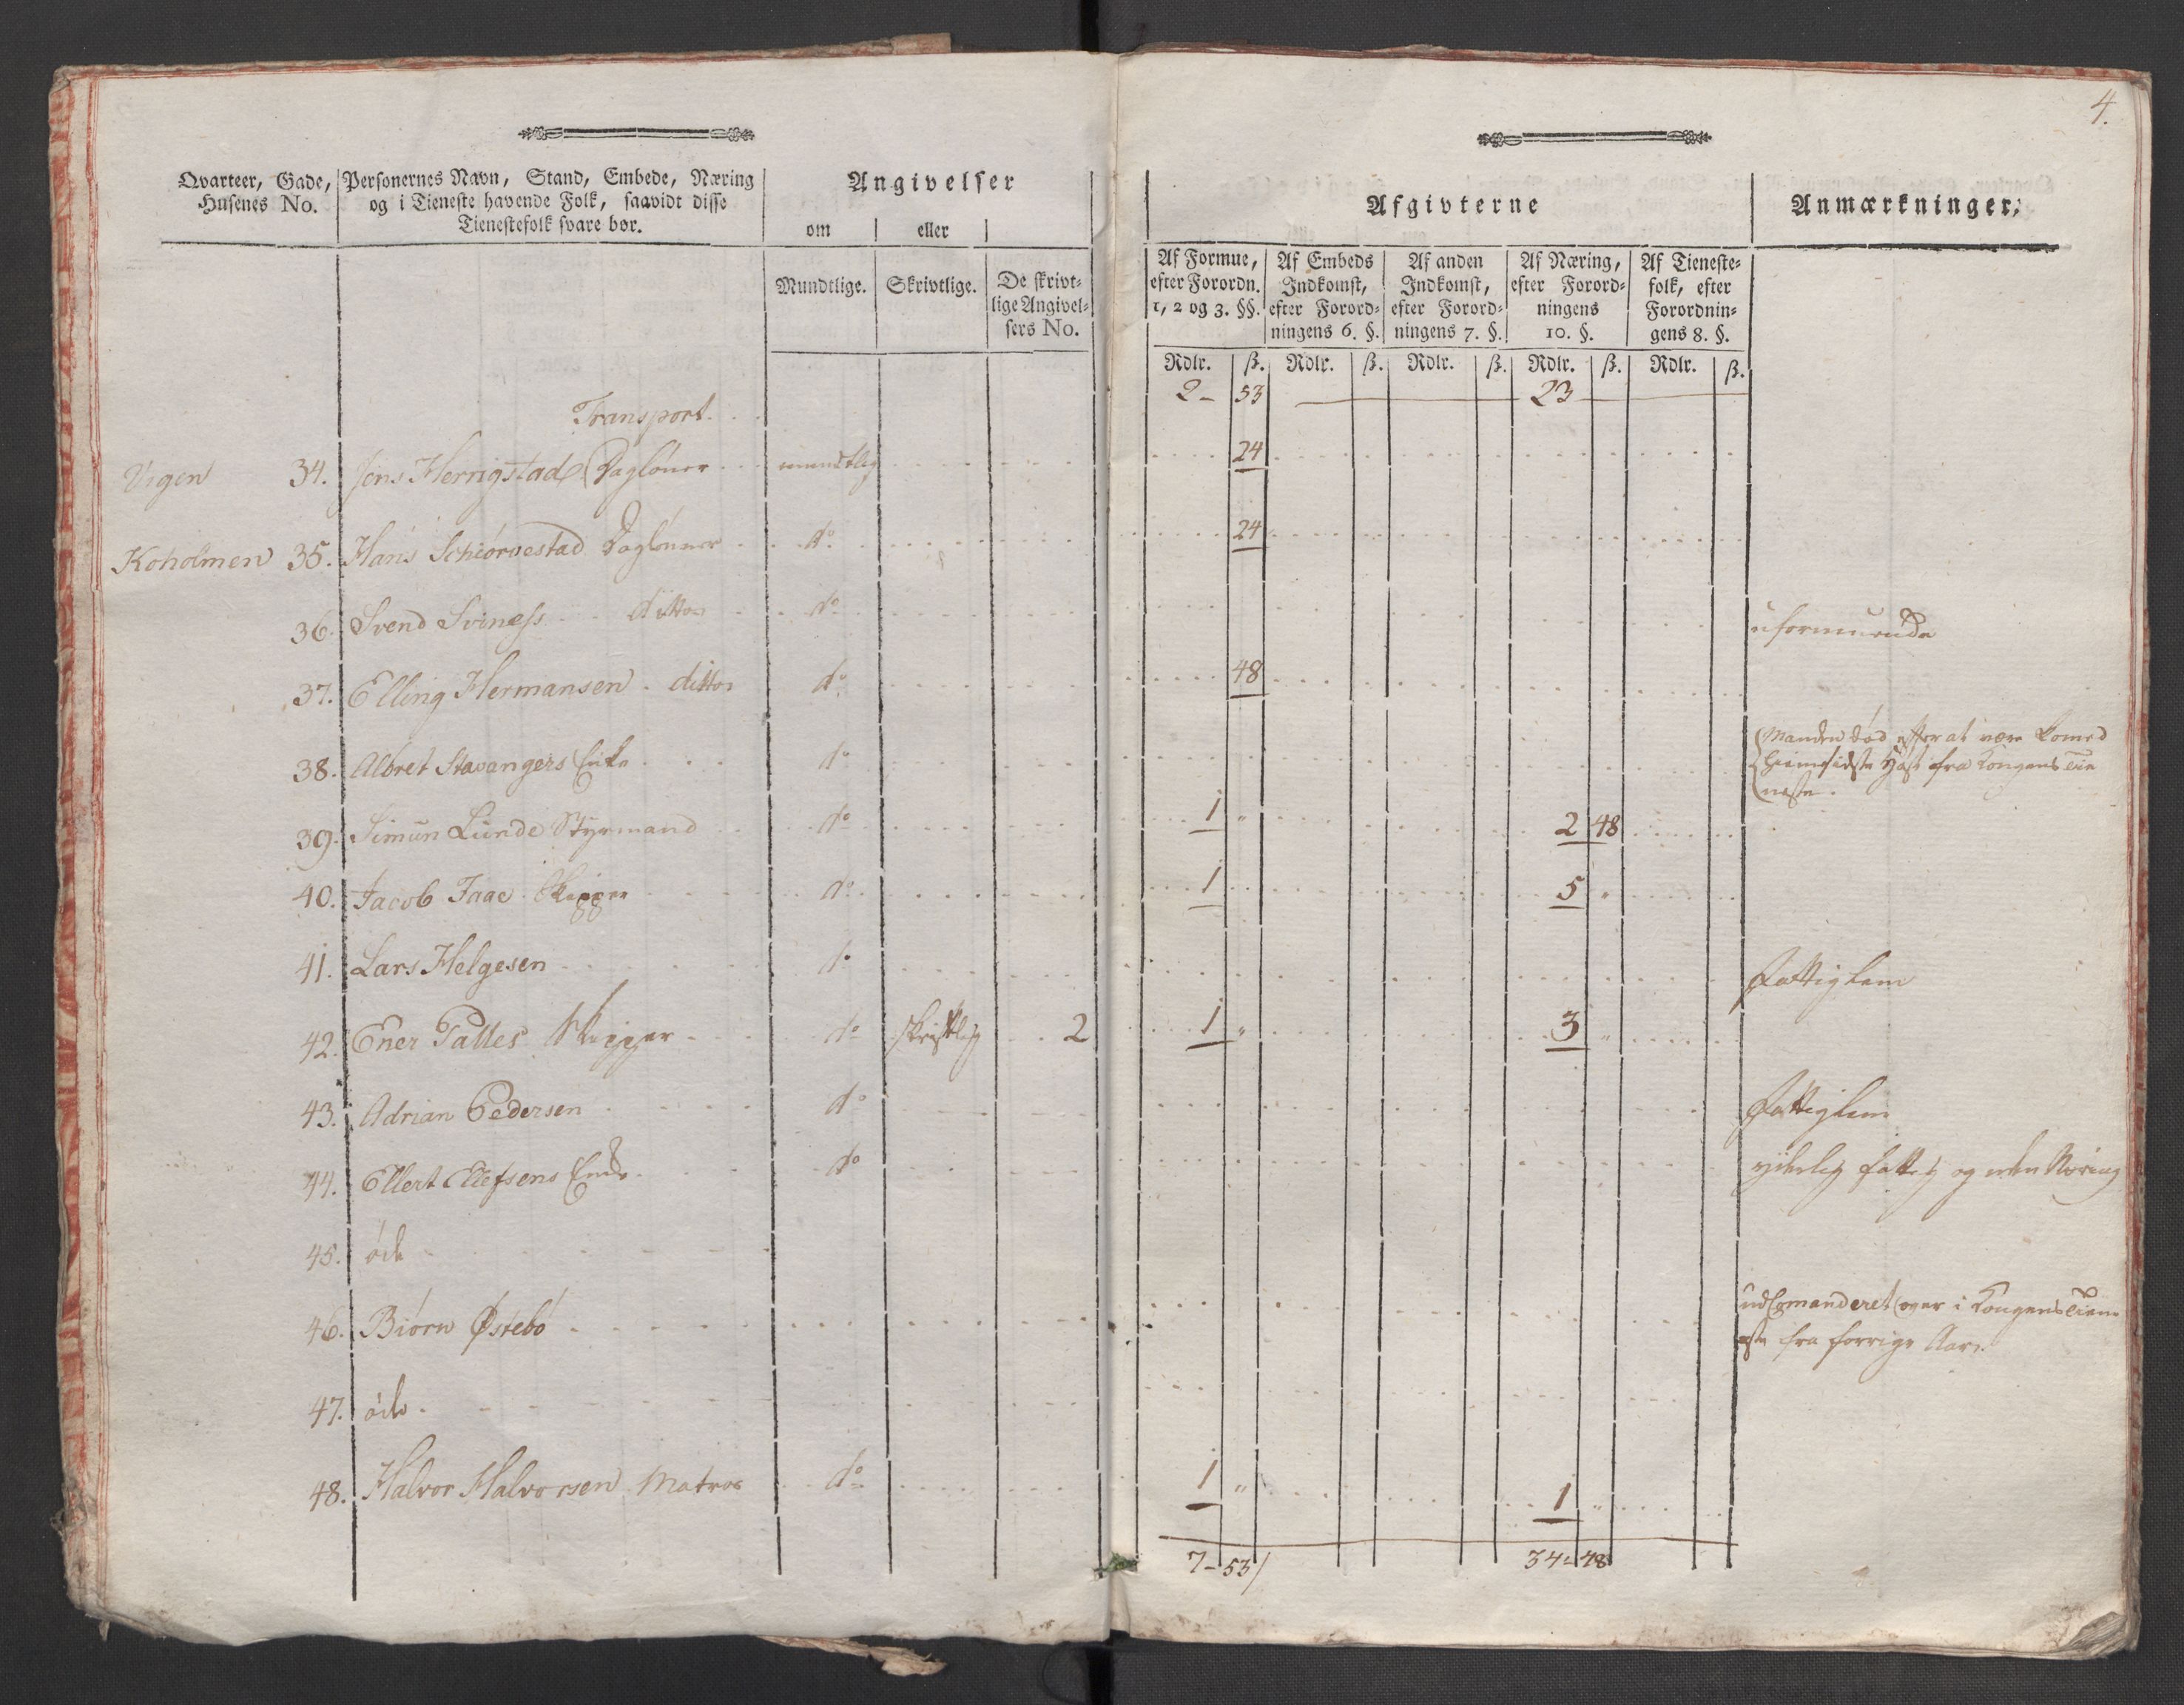 4.
Qvarteer, Gade, Husenes No.
Personernes Navn, Stand, Embede, Næring og i Tieneste havende Folk, saavidt disse Tienestefolk svare bør.
Angivelser
om eller
Mundtlige. Skrivtlige. De skrivtlige Angivelsers No.
Afgivterne
Anmærkninger.
Af Formue, efter Forordn. 1, 2 og 3. §§.
Af Embeds Indkomst, efter Forordningens 6. §.
Af anden Indkomst, efter Forordningens 7. §.
Af Næring, efter Forordningens 10. §.
Af Tienestefolk, efter Forordningens 8. §.
Rdlr. ß. Rdlr. ß. Rdlr. ß. Rdlr. ß. Rdlr. ß.
Transport. 2 - 53 23
Vigen 34. Jens Herrigstad Dagløner mundtlig 24
Koholmen 35. Hans Schiørvestad Daglønner do 24
36. Svend Svines ditto do uformuende
37. Elling Hermansen ditto do 48
38. Albret Stavangers Enke do Manden død efter at være komed
hiem sidste Høst fra Kongens Tie
neste.
39. Simun Lunde Styrmand do 1 " 2 48
40. Jacob Taae Skipper do 1 5 "
41. Lars Helgesen do Fattiglem
42. Ener Talles Skipper do skriftlig 2 1 " 3 "
43. Adrian Pedersen do Fattiglem
44. Ellert Ellefsens Enke do fattig og uden Næring
45. øde
46. Biørn Østebø udCommanderet over i Kongens Tiene
ste fra forrige Aar.
47. øde
48. Halvor Halvorsen Matros do 1 " 1 "
7 - 53 34 - 48